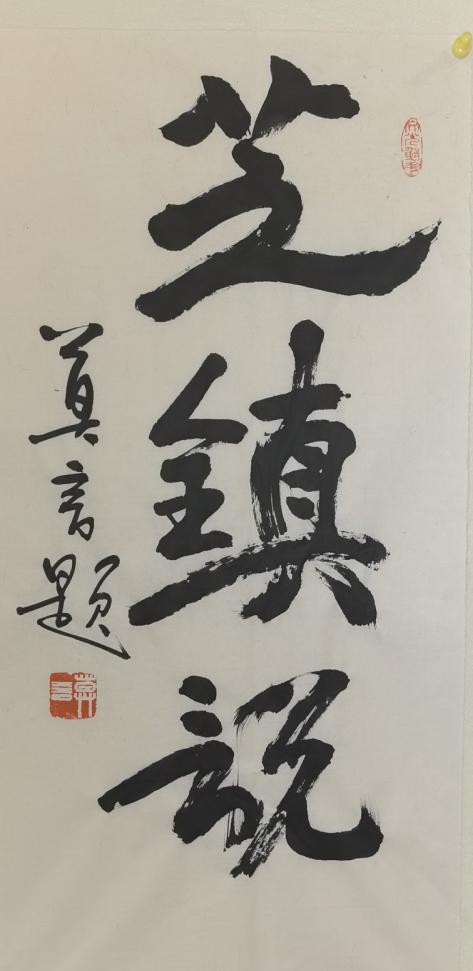 芝鎮説
莫言题